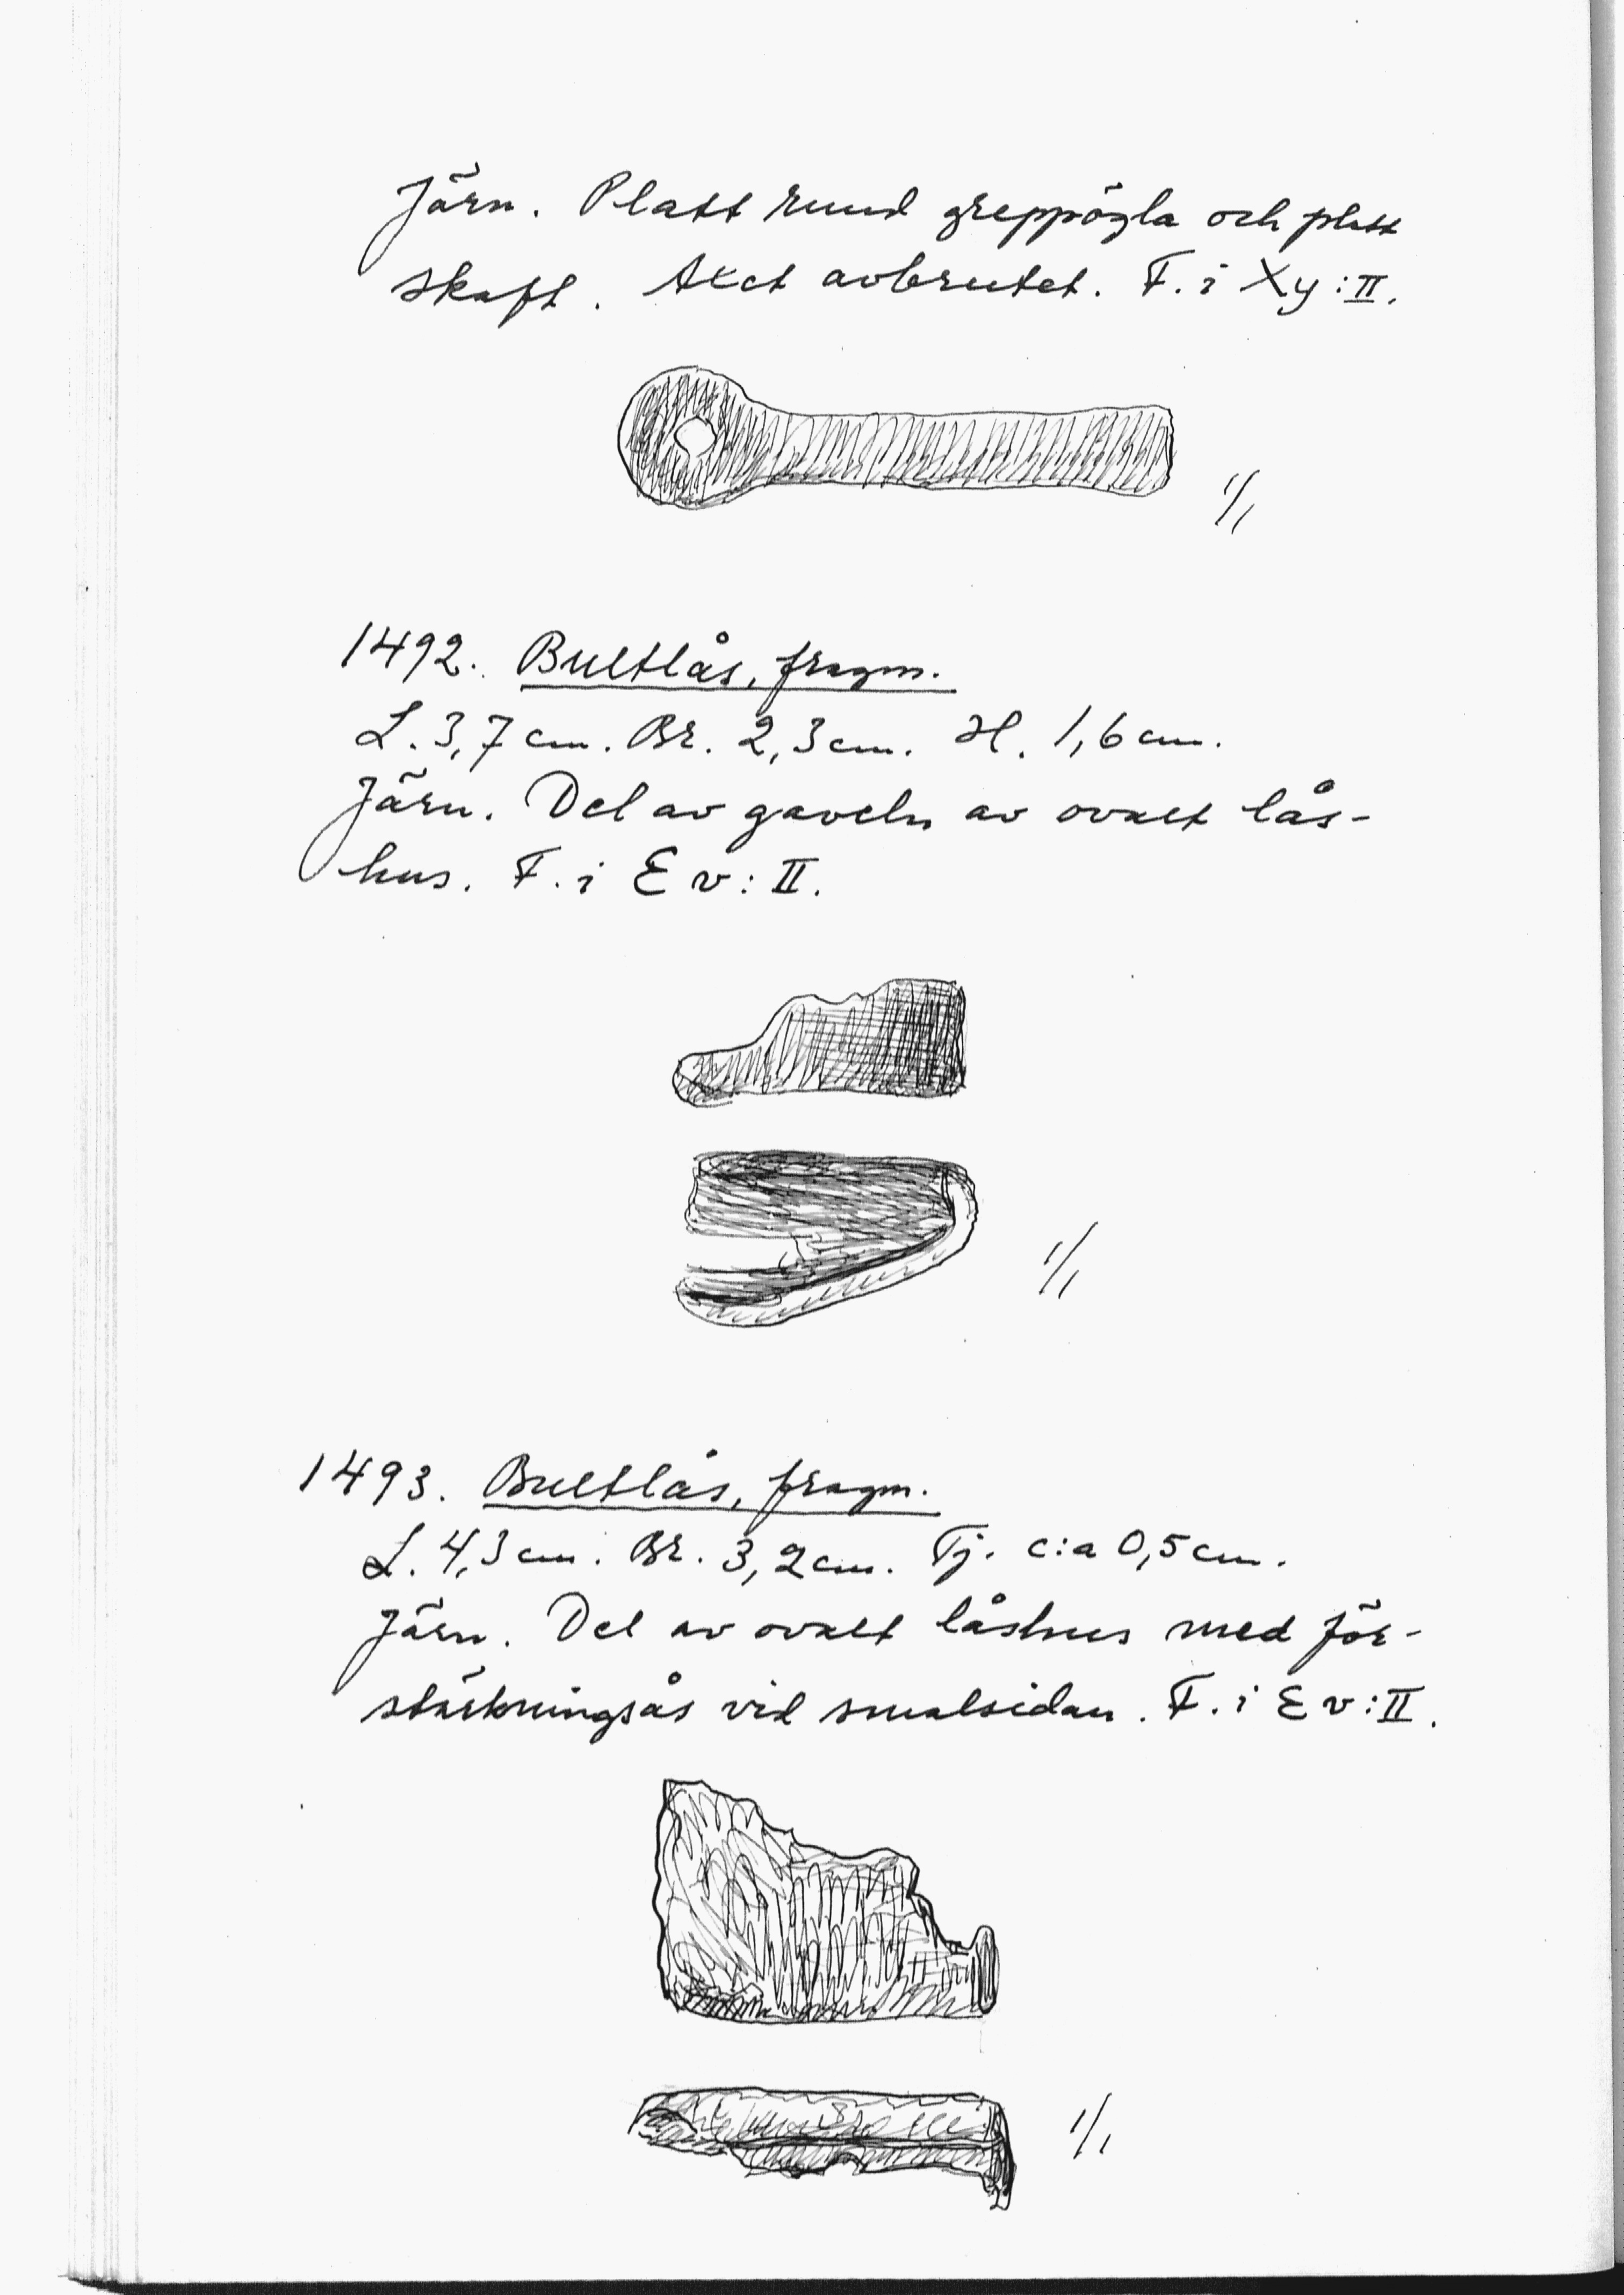 Järn. Platt rund greppögla och platt
skaft. Axet avbrutet. F. i Xy:II.
1/1
1492. Bultlås, fragm.
L. 3,7 cm. Br. 2,3 cm. H. 1,6 cm.
Järn. Del av gaveln av ovalt lås-
hus. F. i Ev:II.
1/1
1493. Bultlås, fragm.
L. 4,3 cm. Br. 3,2 cm. Tj. c:a 0,5 cm.
Järn. Del av ovalt låshus med för-
stärkningsås vid smalsidan. F. i Ev:II.
1/1